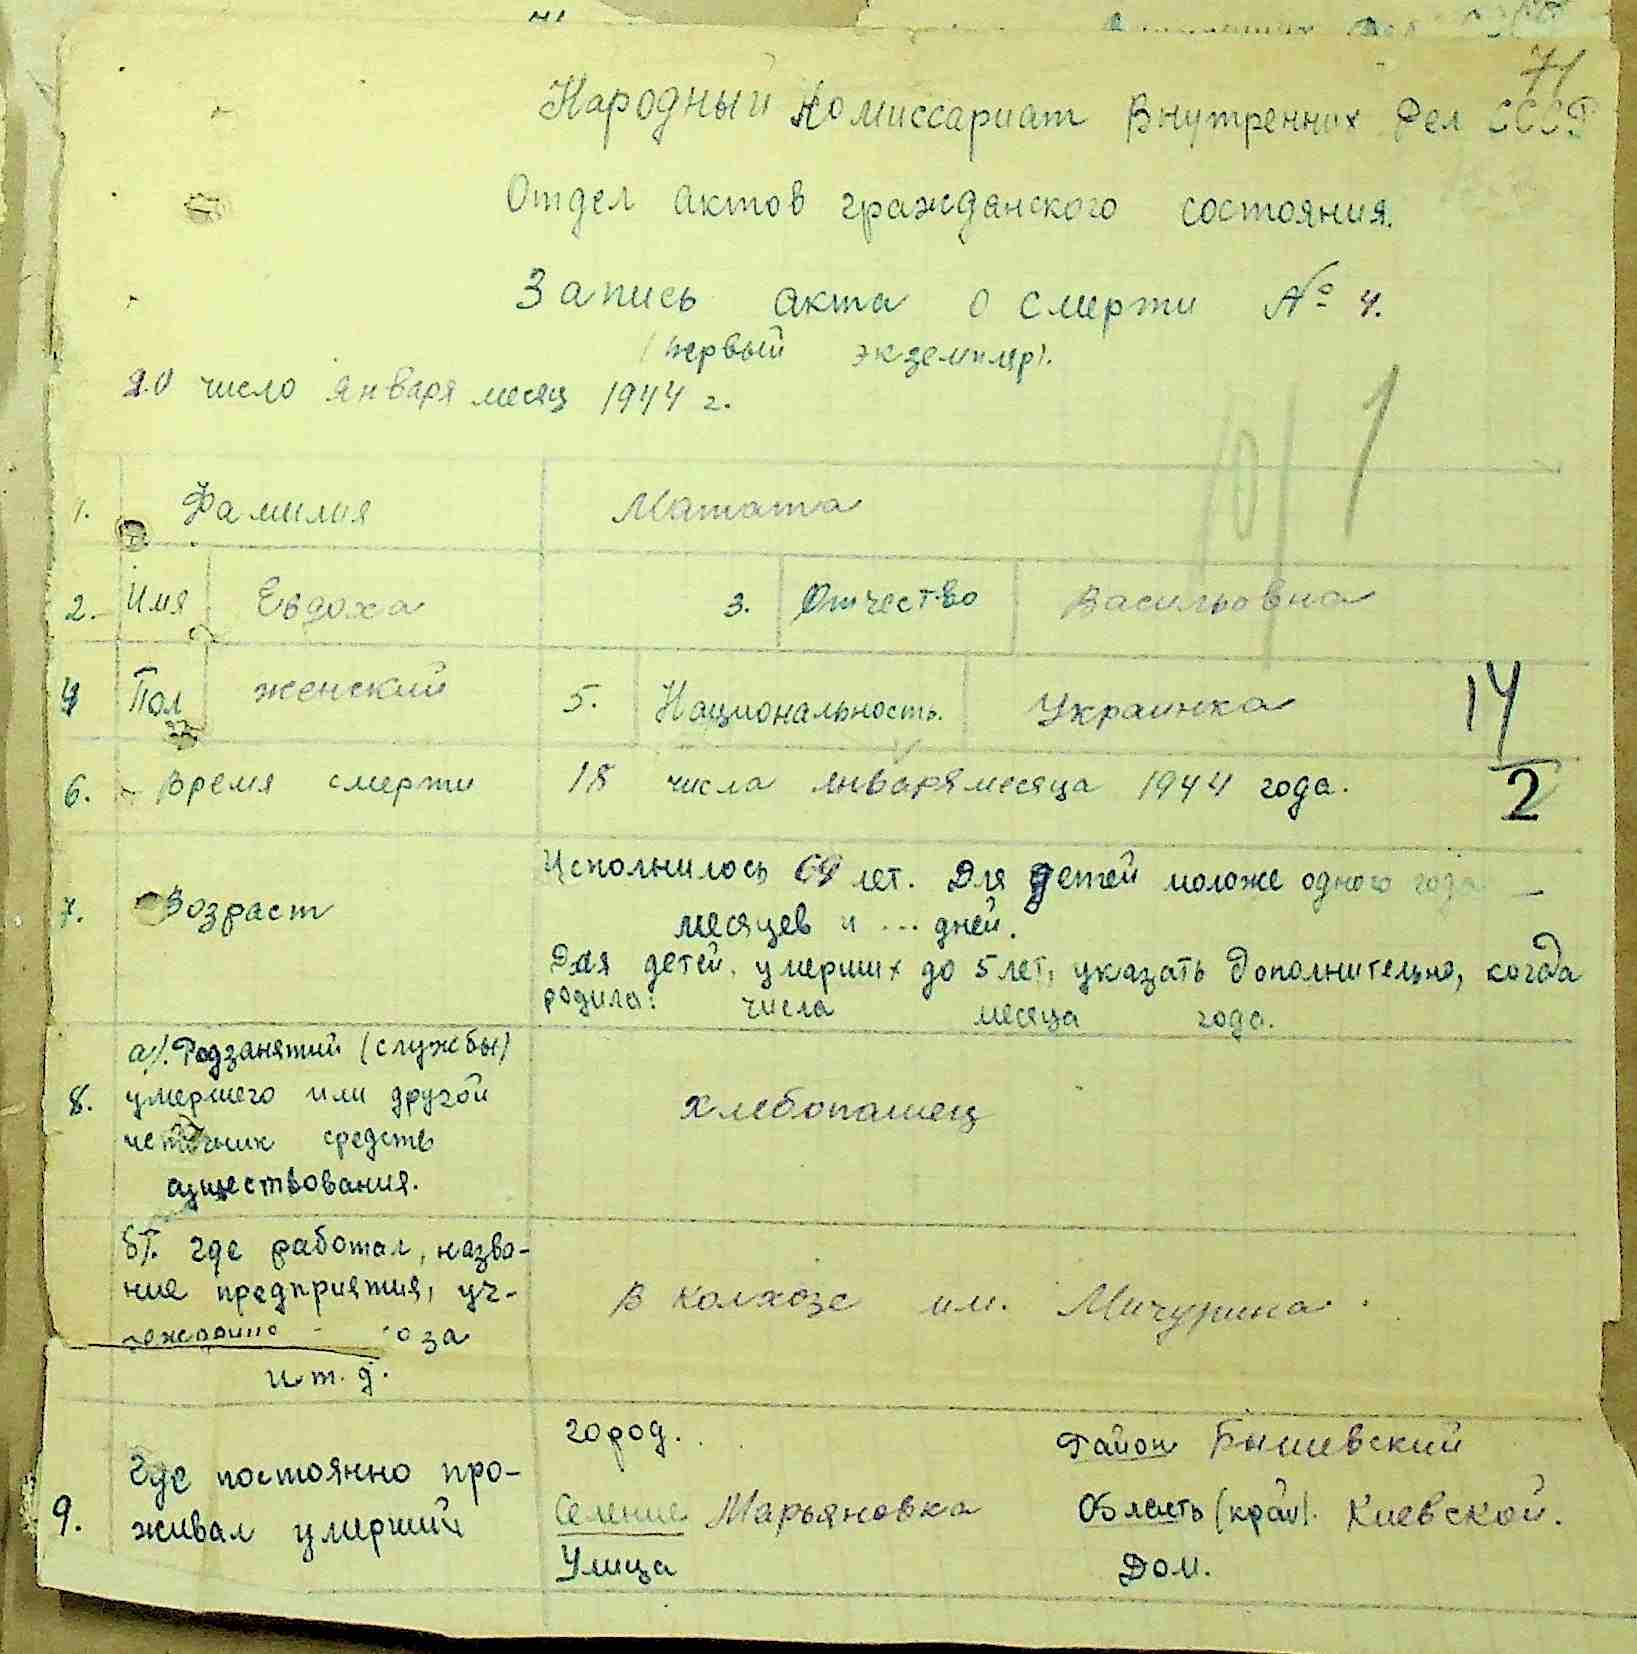 71
Народный Комиссариат Внутренних Дел СССР
Отдел актов гражданского состояния.
Запись акта о смерти № 4.
(первый экземпляр).
20 число января месяц 1944 г.
1
1. Фамилия Матата
2. Имя Евдоха 3. Отчество Васильовна
4 Пол женский 5. Национальность. Украинка
14
2
6. Время смерти 18 числа января месяца 1944 года.
7. Возраст Исполнилось 69 лет. Для детей моложе одного года —
месяцев и ... дней.
Для детей, умерших до 5 лет, указать дополнительно, когда
родила: числа месяца года.
8. а). Род занятий (службы)
умершего или другой
источник средств
существования.
хлебопашец
б). где работал, назва-
ние предприятия, уч-
за
и т. д.
в колхозе им. Мичурина.
9. Где постоянно про-
живал умерший
город. Район Бышевский
Селение Марьяновка Область (край). Киевской.
Улица Дом.